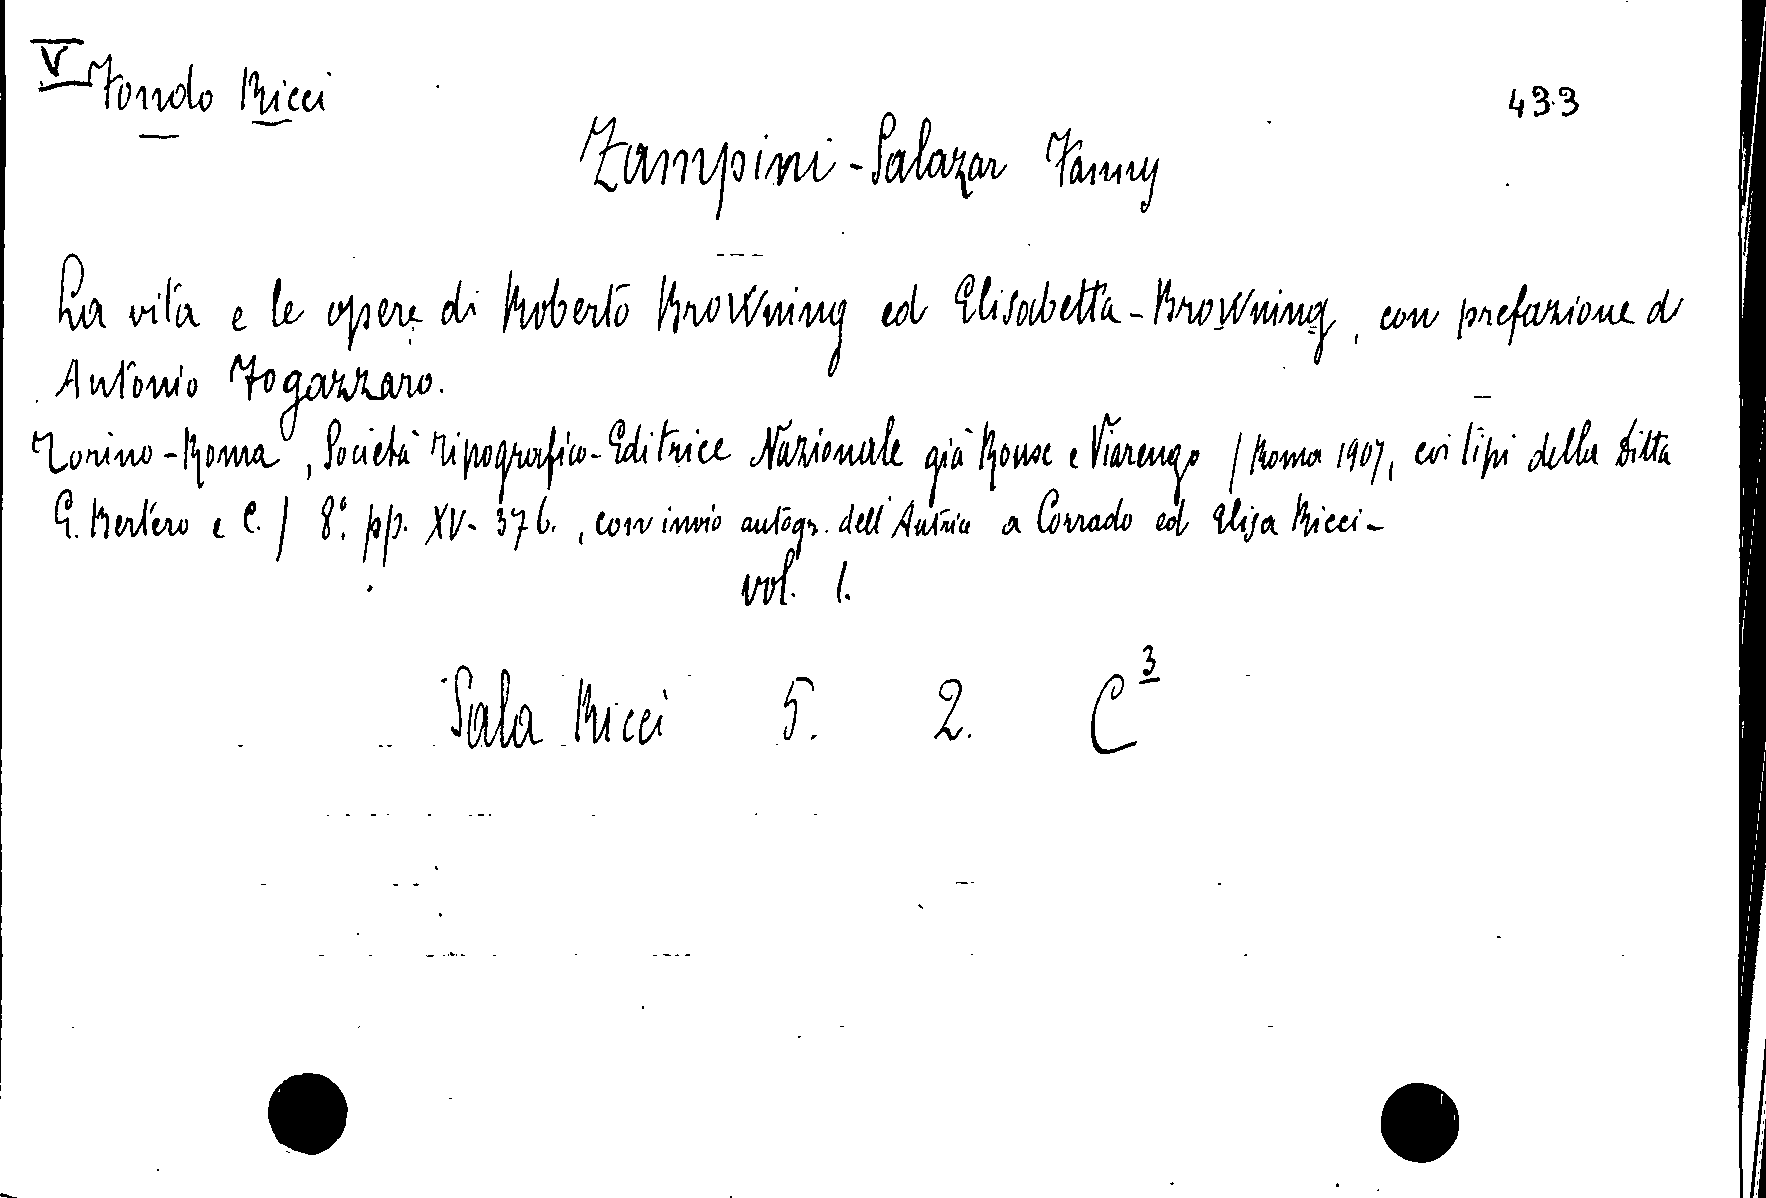 V Fondo Ricci
433
Zampini-Salazar Fanny
La vita e le opere di Roberto Browning ed Elisabetta-Browning, con prefazione d
Antonio Fogazzaro.
Torino-Roma, Società Tipografico-Editrice Nazionale già Roux e Viarengo / Roma 1907, coi tipi della Ditta
G. Bertero e C. / 8°. pp. XV-376., con invio autogr. dell'Autrice a Corrado ed Elisa Ricci-
vol. 1.
Sala Ricci 5. 2. C³